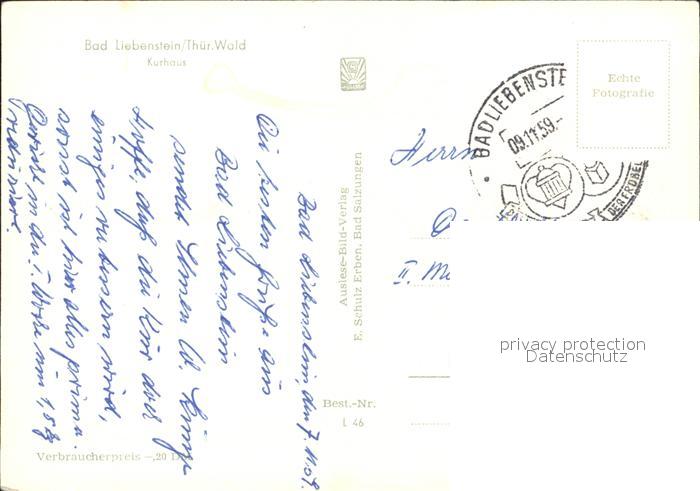 Bad Liebenstein/Thür. Wald
Kurhaus
Echte
Fotografie
BAD LIEBENSTE
09.11.59.-
DER FRÖBEL
Herrn
II.
Auslese-Bild-Verlag
E. Schulz Erben, Bad Salzungen
Best.-Nr.
L 46
Verbraucherpreis -,20 D
Bad Liebenstein, den 7.11.59.
Die besten Grüße aus
Bad Liebenstein
sendet Ihnen W.
Hoffe, daß die Kur doch
einiges bessern wird,
sonst ist hier alles prima.
privacy protection
Datenschutz